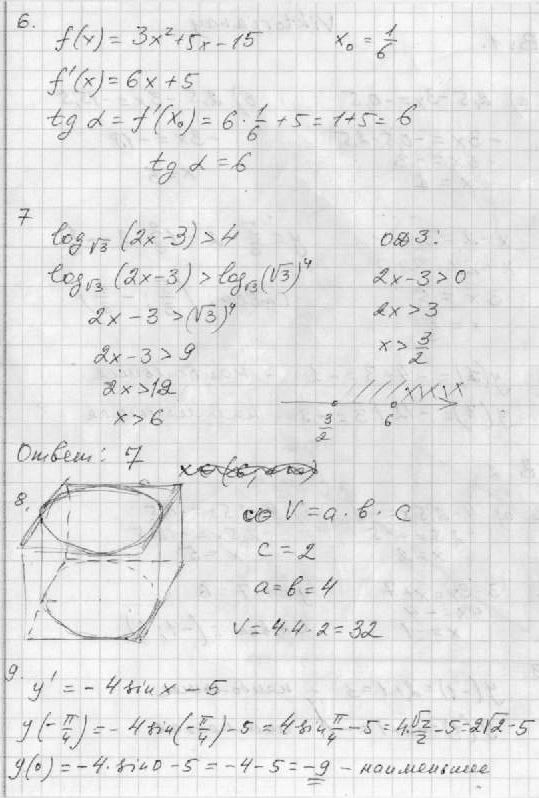 6.
f(x) = 3x² + 5x - 15 x₀ = 1/6
f'(x) = 6x + 5
tg α = f'(x₀) = 6 · 1/6 + 5 = 1 + 5 = 6
tg α = 6
7
log_√3 (2x - 3) > 4 ОДЗ:
log_√3 (2x - 3) > log_√3 (√3)⁴ 2x - 3 > 0
2x - 3 > (√3)⁴ 2x > 3
2x - 3 > 9 x > 3/2
2x > 12
x > 6 3/2 6
Ответ: 7
8. V = a · b · c
c = 2
a = b = 4
V = 4 · 4 · 2 = 32
9. y' = - 4 sin x - 5
y(-π/4) = - 4 sin(-π/4) - 5 = 4 sin π/4 - 5 = 4·√2/2 - 5 = 2√2 - 5
y(0) = -4 · sin 0 - 5 = -4 - 5 = -9 - наименьшее